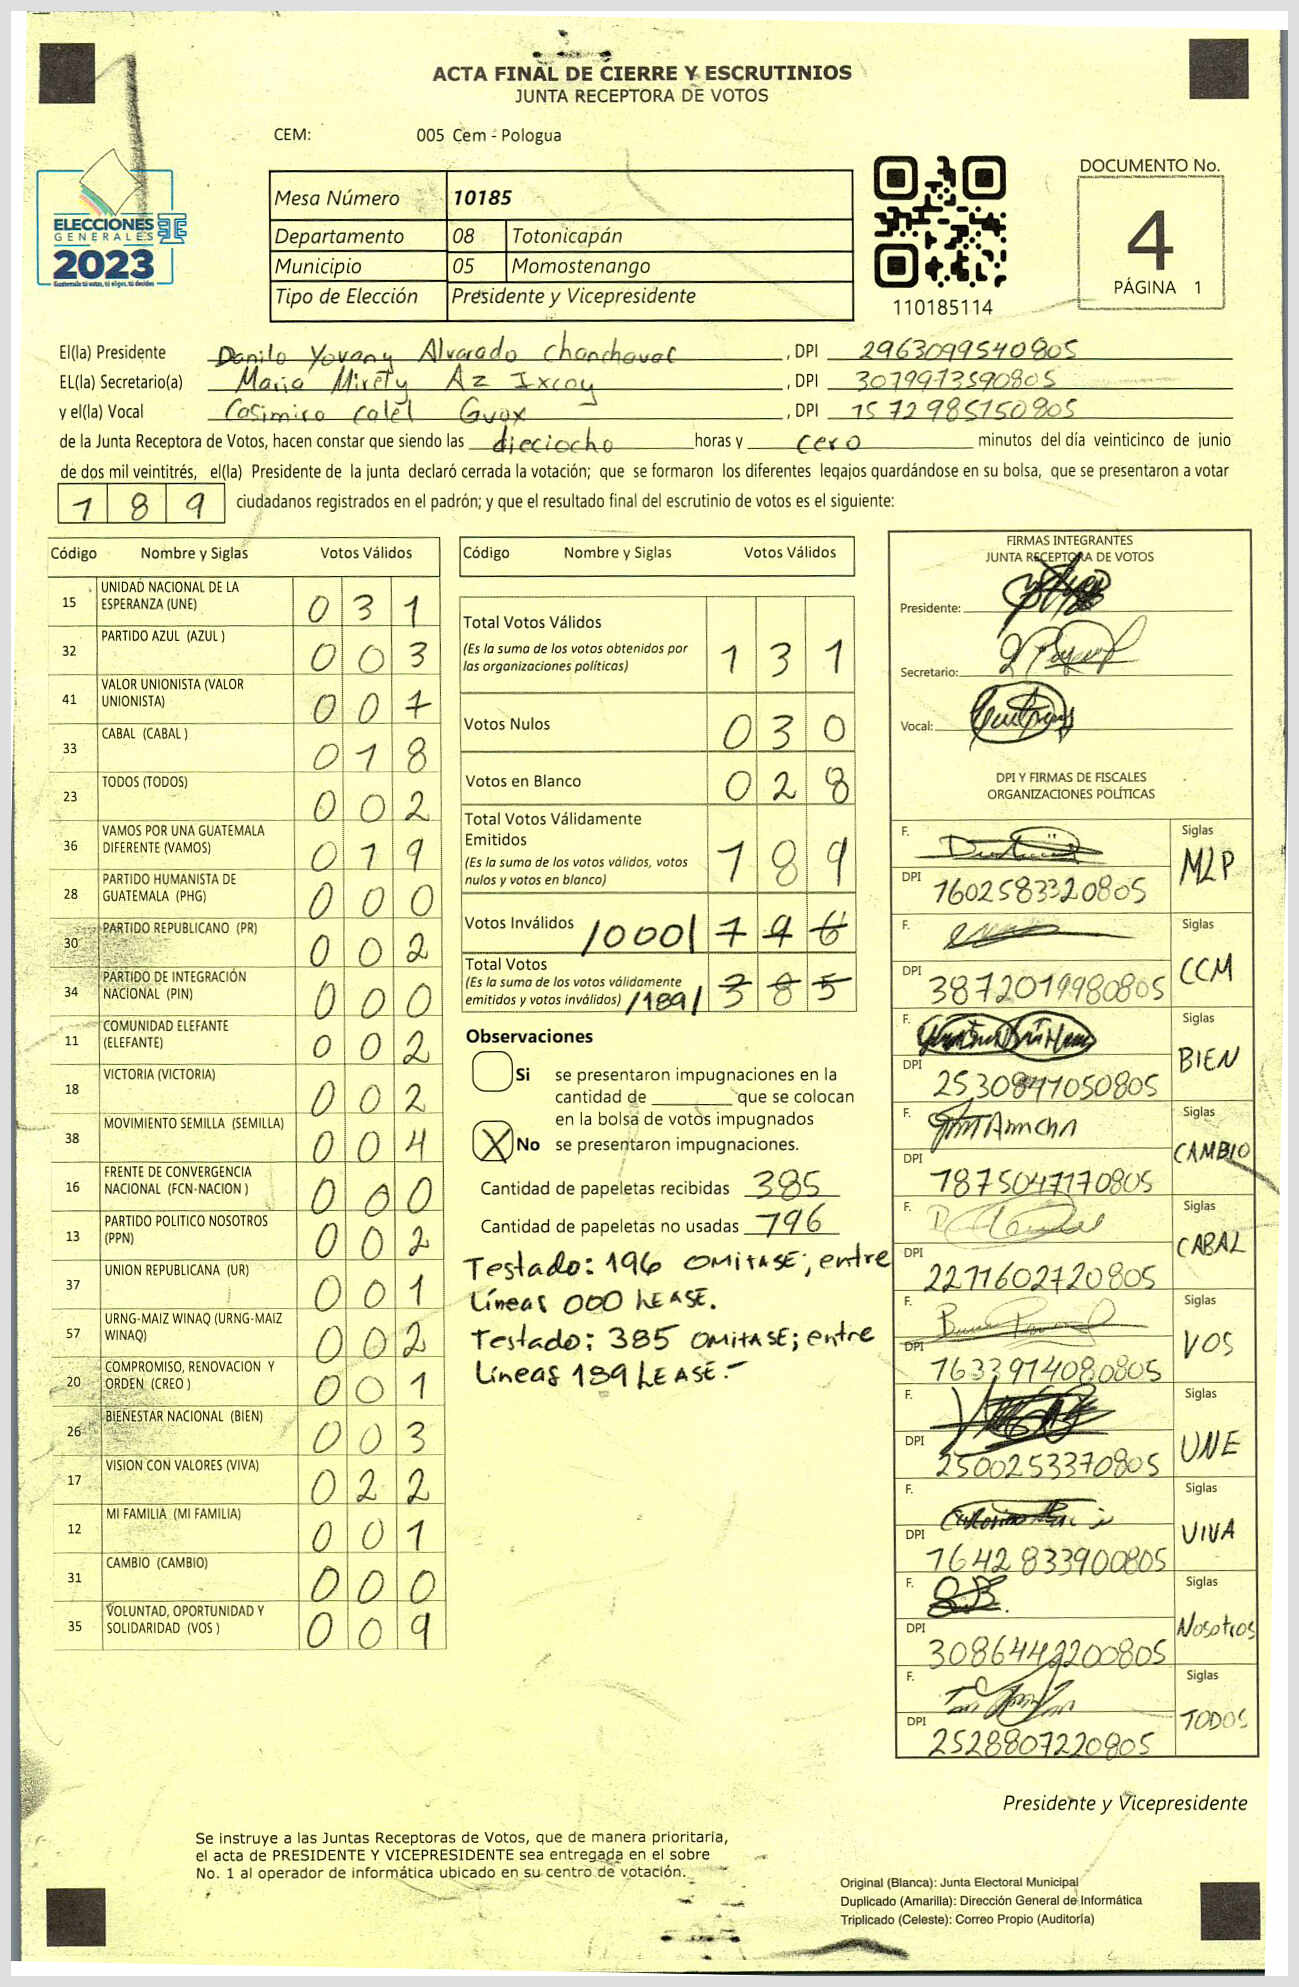 ACTA FINAL DE CIERRE Y ESCRUTINIOS
JUNTA RECEPTORA DE VOTOS
CEM: 005 Cem - Pologua
ELECCIONES
GENERALES
2023
Guatemala tú votas, tú eliges, tú decides
Mesa Número 10185
Departamento 08 Totonicapán
Municipio 05 Momostenango
Tipo de Elección Presidente y Vicepresidente
110185114
DOCUMENTO No.
4
PÁGINA 1
El(la) Presidente Danilo Yovany Alvarado Chanchavac, DPI 2963099540805
EL(la) Secretario(a) Maria Mirety Az Ixcoy, DPI 3079973590805
y el(la) Vocal Casimiro Calel Guox, DPI 1572985150805
de la Junta Receptora de Votos, hacen constar que siendo las dieciocho horas y cero minutos del día veinticinco de junio
de dos mil veintitrés, el(la) Presidente de la junta declaró cerrada la votación; que se formaron los diferentes legajos quardándose en su bolsa, que se presentaron a votar
189 ciudadanos registrados en el padrón; y que el resultado final del escrutinio de votos es el siguiente:
Código Nombre y Siglas Votos Válidos
15 UNIDAD NACIONAL DE LA ESPERANZA (UNE) 031
32 PARTIDO AZUL (AZUL ) 003
41 VALOR UNIONISTA (VALOR UNIONISTA) 007
33 CABAL (CABAL ) 018
23 TODOS (TODOS) 002
36 VAMOS POR UNA GUATEMALA DIFERENTE (VAMOS) 019
28 PARTIDO HUMANISTA DE GUATEMALA (PHG) 000
30 PARTIDO REPUBLICANO (PR) 002
34 PARTIDO DE INTEGRACIÓN NACIONAL (PIN) 000
11 COMUNIDAD ELEFANTE (ELEFANTE) 002
18 VICTORIA (VICTORIA) 002
38 MOVIMIENTO SEMILLA (SEMILLA) 004
16 FRENTE DE CONVERGENCIA NACIONAL (FCN-NACION ) 000
13 PARTIDO POLITICO NOSOTROS (PPN) 002
37 UNION REPUBLICANA (UR) 001
57 URNG-MAIZ WINAQ (URNG-MAIZ WINAQ) 002
20 COMPROMISO, RENOVACION Y ORDEN (CREO ) 001
26 BIENESTAR NACIONAL (BIEN) 003
17 VISION CON VALORES (VIVA) 022
12 MI FAMILIA (MI FAMILIA) 001
31 CAMBIO (CAMBIO) 000
35 VOLUNTAD, OPORTUNIDAD Y SOLIDARIDAD (VOS ) 009
Código Nombre y Siglas Votos Válidos
Total Votos Válidos 131
(Es la suma de los votos obtenidos por
las organizaciones politicas)
Votos Nulos 030
Votos en Blanco 028
Total Votos Válidamente
Emitidos 189
(Es la suma de los votos válidos, votos
nulos y votos en blanco)
Votos Inválidos /000/ 196
Total Votos
(Es la suma de los votos válidamente
emitidos y votos inválidos) /189/ 385
Observaciones
Si se presentaron impugnaciones en la
cantidad de ________ que se colocan
en la bolsa de votos impugnados
X No se presentaron impugnaciones.
Cantidad de papeletas recibidas 385
Cantidad de papeletas no usadas 196
Testado: 196 OMITASE; entre
Líneas 000 LEASE.
Testado: 385 OMITASE; entre
Líneas 189 LEASE.-
FIRMAS INTEGRANTES
JUNTA RECEPTORA DE VOTOS
Presidente:
Secretario:
Vocal:
DPI Y FIRMAS DE FISCALES
ORGANIZACIONES POLÍTICAS
F. Siglas MLP
DPI 1602583320805
F. Siglas CCM
DPI 3872019980805
F. Siglas BIEN
DPI 2530847050805
F. Siglas CAMBIO
DPI 1875047170805
F. Siglas CABAL
DPI 2271602720805
F. Siglas VOS
DPI 1633914080805
F. Siglas UNE
DPI 2500253370805
F. Siglas VIVA
DPI 1642833900805
F. Siglas Nosotros
DPI 3086442200805
F. Siglas TODOS
DPI 2528807220805
Presidente y Vicepresidente
Se instruye a las Juntas Receptoras de Votos, que de manera prioritaria,
el acta de PRESIDENTE Y VICEPRESIDENTE sea entregada en el sobre
No. 1 al operador de informática ubicado en su centro de votación.
Original (Blanca): Junta Electoral Municipal
Duplicado (Amarilla): Dirección General de Informática
Triplicado (Celeste): Correo Propio (Auditoría)